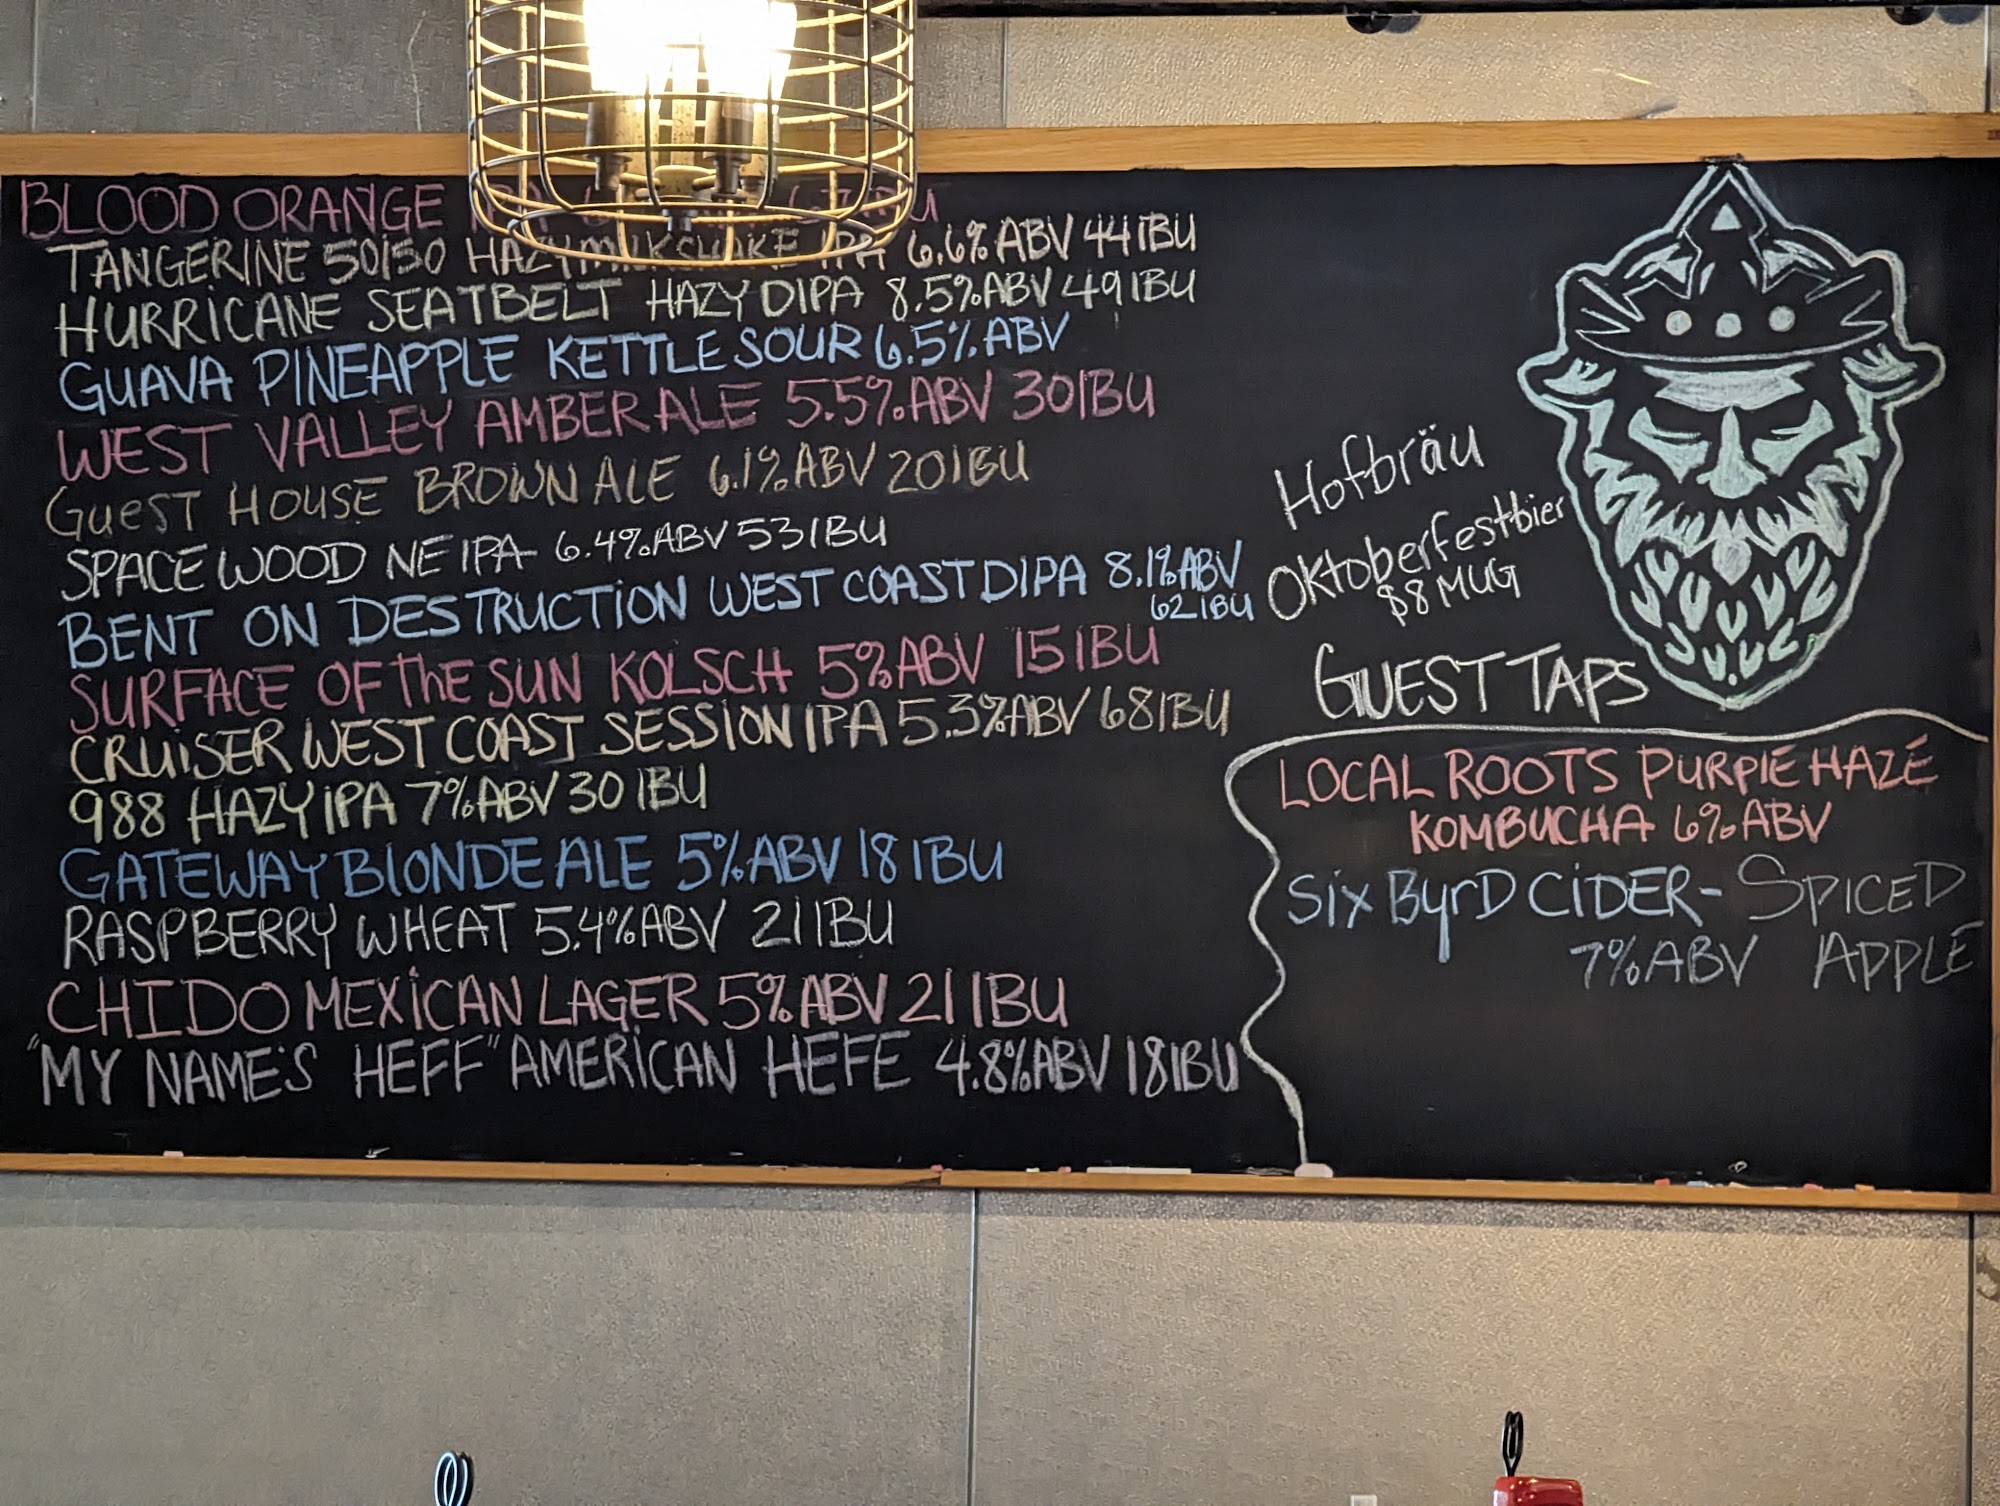 BLOOD ORANGE IPA
TANGERINE 50/50 HAZY MILKSHAKE IPA 6.6% ABV 44 IBU
HURRICANE SEATBELT HAZY DIPA 8.5% ABV 49 IBU
GUAVA PINEAPPLE KETTLE SOUR 6.5% ABV
WEST VALLEY AMBER ALE 5.5% ABV 30 IBU
GUeST HOUSE BROWN ALE 6.1% ABV 20 IBU
SPACE WOOD NE IPA 6.4% ABV 53 IBU
BENT ON DESTRUCTiON WEST COAST DIPA 8.1% ABV
62 IBU
SURFACE OF ThE SUN KOLSCH 5% ABV 15 IBU
CRUiSER WEST COAST SESSION IPA 5.3% ABV 68 IBU
988 HAZY IPA 7% ABV 30 IBU
GATEWAY BLONDE ALE 5% ABV 18 IBU
RASPBERRY WHEAT 5.4% ABV 21 IBU
CHIDO MEXiCAN LAGER 5% ABV 21 IBU
"MY NAME'S HEFF" AMERiCAN HEFE 4.8% ABV 18 IBU
Hofbräu
Oktoberfestbier
$8 MUG
GUEST TAPS
LOCAL ROOTS PURPlE HAZE
KOMBUCHA 6% ABV
Six ByrD CiDER - SPICED
7% ABV APPLE